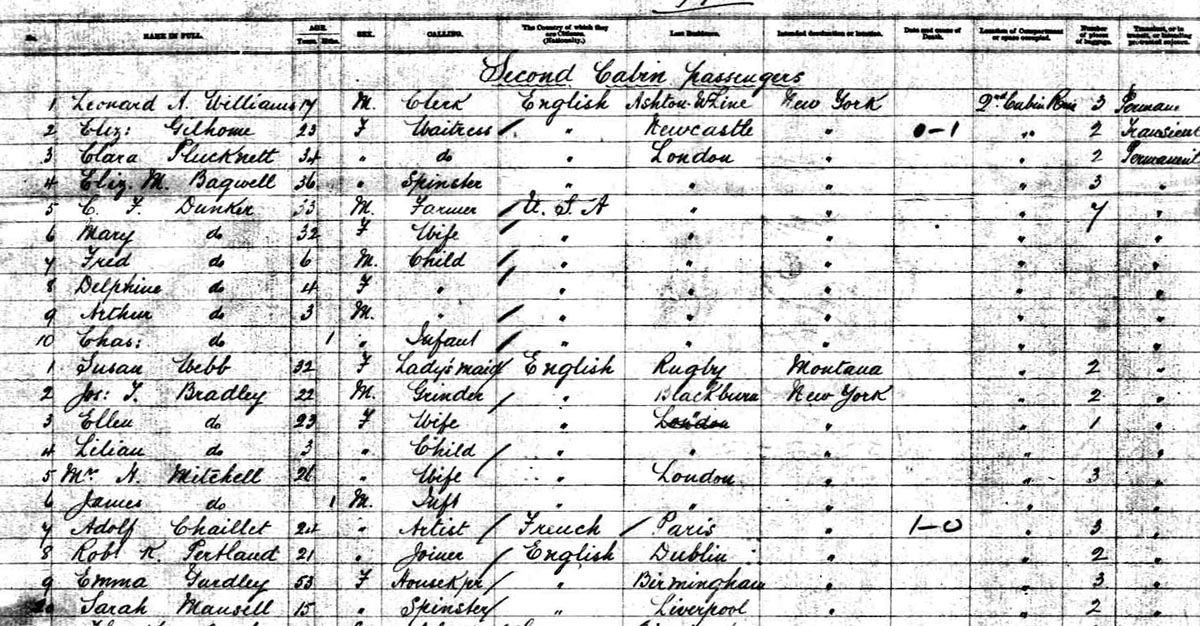 No. NAME IN FULL. AGE. Years. Mths. SEX. CALLING. The Country of which they are Citizens. (Nationality.) Last Residence. Intended destination or location. Date and cause of Death. Location of Compartment or space occupied. Number of pieces of baggage. Transient, or in transit, or intending protracted sojourn.
Second Cabin passengers
1 Leonard A. Williams 17 M. Clerk English Ashton-U-Line New York 2nd Cabin 3 Perman
2 Eliz: Gilhome 23 F Waitress / " Newcastle " 0-1 " 2 Transient
3 Clara Plucknett 34 " do " London " " 2 Permanent
4 Eliz. M. Bagwell 36 " Spinster " " " " 3 "
5 C. F. Dunker 33 M. Farmer / U.S.A " " " 7 "
6 Mary do 32 F Wife / " " " " "
7 Fred do 6 M. Child / " " " " "
8 Delphine do 4 F " / " " " " "
9 Arthur do 3 M. " / " " " " "
10 Chas: do 1 " Infant / " " " " "
1 Susan Webb 32 F Lady's maid / English Rugby Montana " 2 "
2 Jos: T. Bradley 22 M. Grinder / " Blackburn New York " 2 "
3 Ellen do 23 F Wife " London " " 1 "
4 Lilian do 3 " Child / " " " " "
5 Mrs A. Mitchell 26 " Wife " London " " 3 "
6 James do 1 M. Inft " " " " "
7 Adolf Chaillet 24 " Artist / French / Paris " 1-0 " 3 "
8 Robt K. Pertland 21 " Joiner / English Dublin " " 2 "
9 Emma Yardley 53 F Housekpr / " Birmingham " " 3 "
20 Sarah Mansell 15 " Spinster / " Liverpool " " 2 "